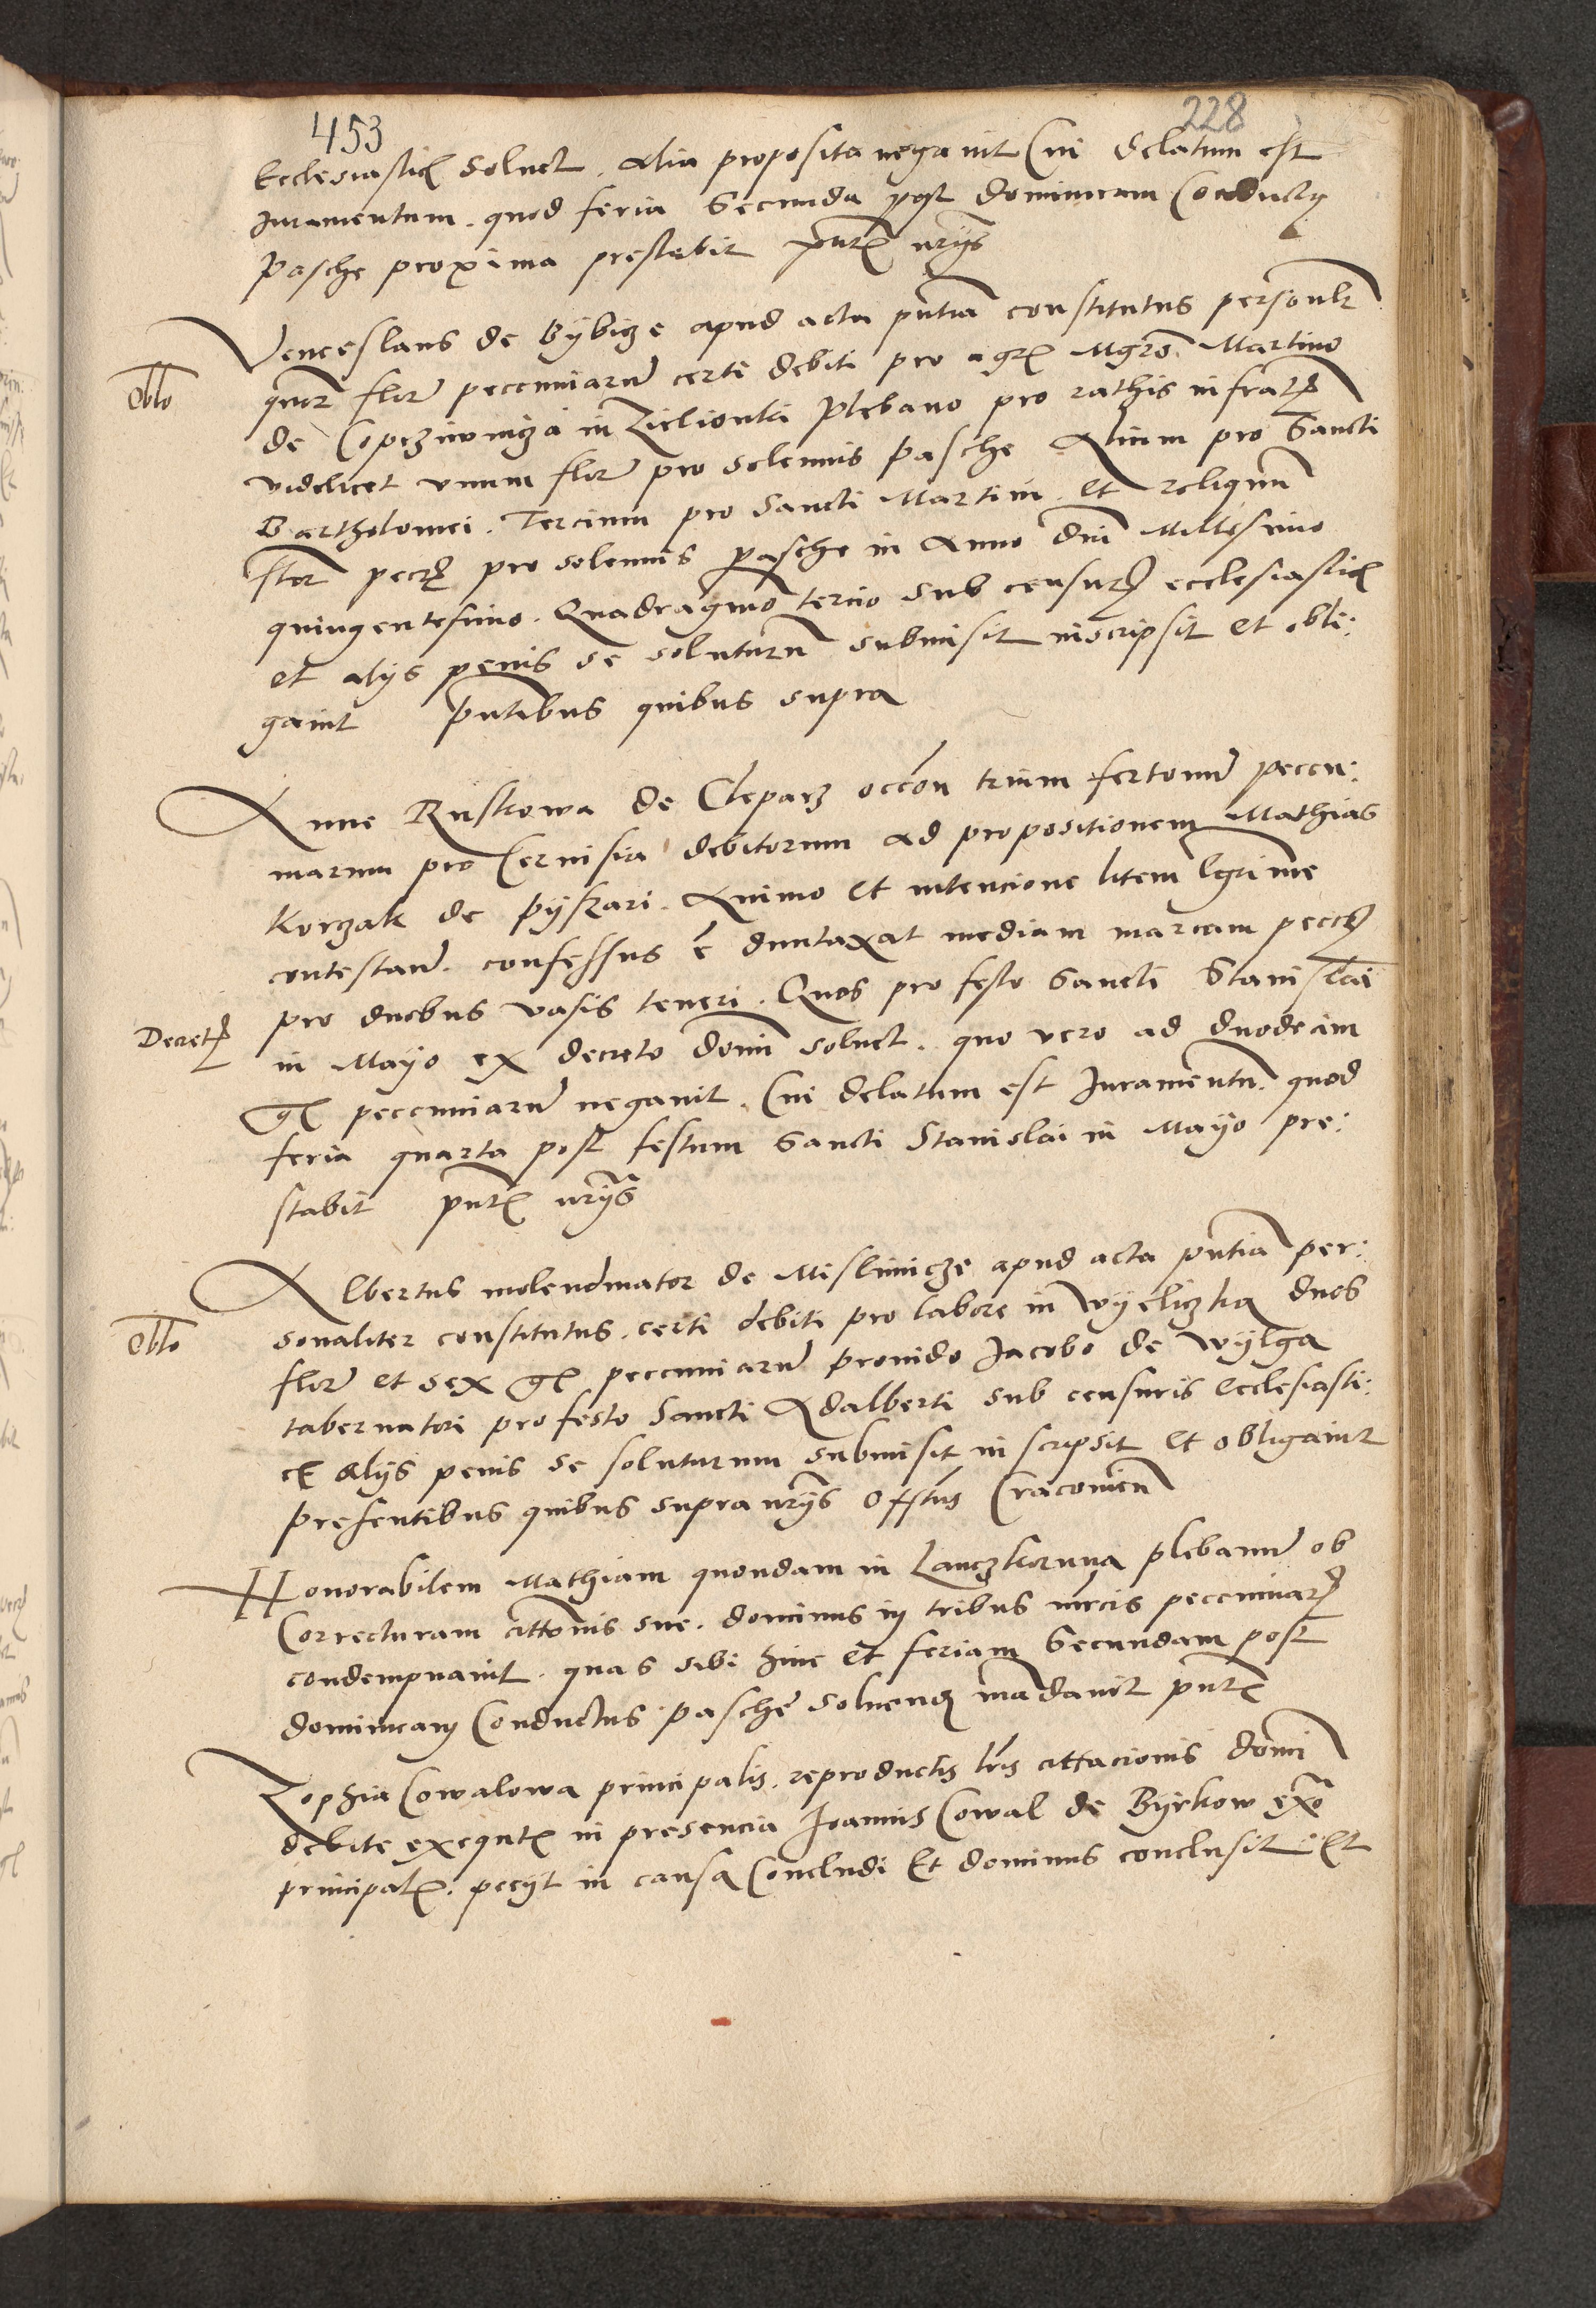 453
228
Ecclesiasticis soluet. Alia proposita negauit Cui delatum est
Juramentum. quod feria Secunda post dominicam Conductus
Pasche proxima prestabit pntibus nrijs
Venceslaus de Bÿbicze apud acta pntia constitutus personalr
Oblo
quor flor pecuniarum certi debiti pro agris Mgro Martino
de Coprziwnicza in Zielionki Plebano pro rathis infratis
videlicet vnum flor pro solennis Pasche Alium pro Sancti
Bartholomei. Tercium pro Sancti Martini. et reliquum
flor pecz pro solennis pasche in Anno dni Millesimo
quingentesimo. Quadragmo tercio sub censuris ecclesiasticis
et alijs penis se soluturum submisit inscripsit et obli:
gauit pntibus quibus supra
Anne Ruskowa de Cleparz occon trium fertonum peccu:
niarum pro Ceruisia debitorum ad propositionem Mathias
Korczak de Pÿskari. Animo et intencione litem lgittime
contestand. confessus e duntaxat mediam marcam peccz
pro duobus vasis teneri. Quos pro festo Sancti Stanislai
Decretum
in Mayo ex decreto domini soluet. quo vero ad duodecim
gr peccuniarum negauit. Cui delatum est Juramentu. quod
feria quarta post festum Sancti Stanislai in Mayo pre:
stabit pntibus nrijs
Albertus molendinator de Mislimicze apud acta pntia per:
Oblo
sonaliter constitutus. certi debiti pro labore in Wÿeliczka duos
flor et sex gr peccuniarum prouido Jacobo de Wÿlga
tabernatori pro festo Sancti Adalberti sub censuris Ecclesiasti:
et Alijs penis se soluturum submisit inscripsit et obligauit
presentibus quibus supra nrijs Offtus Cracouien
Honorabilem Mathiam quondam in Lanczkoruna plebanum ob
Correcturam cittonis sue. dominus in tribus mrcis peccuniarum
condempnauit. quas sibi hinc et feriam Secundam post
dominicam Conductus Pasche soluend mandauit pntibus
Zophia Cowalowa principalis. reproductis lris cittacionis domini
debite exequtis in presencia Joannis Cowal de Byrkow exo
principalis. pecÿt in causa Concludi Et dominus conclusit Et